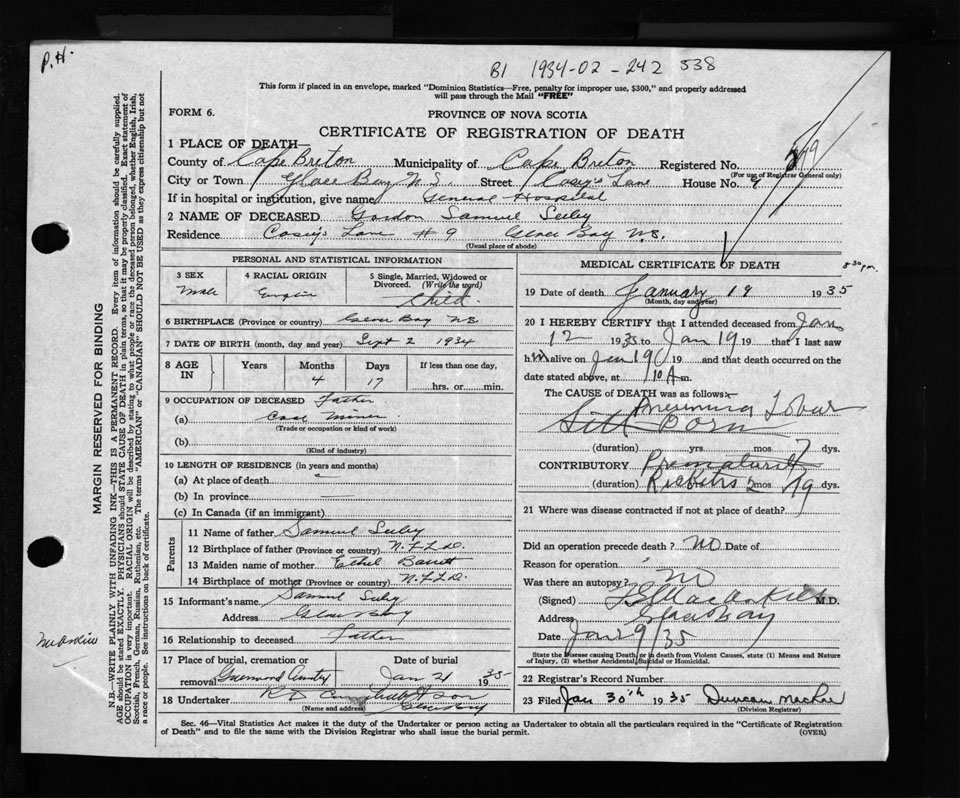 P.H.
B1 1934-02-242 538
This form if placed in an envelope, marked "Dominion Statistics—Free, penalty for improper use, $300," and properly addressed
will pass through the Mail "FREE"
FORM 6.
PROVINCE OF NOVA SCOTIA
CERTIFICATE OF REGISTRATION OF DEATH
1 PLACE OF DEATH—
County of Cape Breton Municipality of Cape Breton Registered No.
(For use of Registrar General only)
City or Town Glace Bay N.S. Street Casey's Lane House No. 9
If in hospital or institution, give name General Hospital
2 NAME OF DECEASED Gordon Samuel Seeley
Residence Casey's Lane #9 Glace Bay N.S.
(Usual place of abode)
PERSONAL AND STATISTICAL INFORMATION
3 SEX
Male
4 RACIAL ORIGIN
English
5 Single, Married, Widowed or
Divorced. (Write the word)
Child.
6 BIRTHPLACE (Province or country) Glace Bay N.S.
7 DATE OF BIRTH (month, day and year) Sept 2 1934
8 AGE IN
Years
Months
4
Days
17
If less than one day,
hrs. or min.
9 OCCUPATION OF DECEASED Father
(a) Coal Miner
(Trade or occupation or kind of work)
(b)
(Kind of industry)
10 LENGTH OF RESIDENCE (in years and months)
(a) At place of death
(b) In province
(c) In Canada (if an immigrant)
Parents
11 Name of father Samuel Seeley
12 Birthplace of father (Province or country) N.F.L.D.
13 Maiden name of mother Ethel
14 Birthplace of mother (Province or country) N.F.L.D.
15 Informant's name Samuel Seeley
Address Glace Bay
16 Relationship to deceased Father
17 Place of burial, cremation or
removal Greenwood
Date of burial
Jan 21 1935
18 Undertaker & Son
(Name and address) Glace Bay
MEDICAL CERTIFICATE OF DEATH
8:30 p.m.
19 Date of death January 19 1935
(Month, day and year)
20 I HEREBY CERTIFY that I attended deceased from Jan
12 1935 to Jan 19 19 that I last saw
him alive on Jan 19 19 and that death occurred on
date stated above, at 10 A m.
The CAUSE of DEATH was as follows:—
Pneumonia Lobar
Still Born
(duration) yrs mos 7 dys.
CONTRIBUTORY Prematurity
(duration) Rickets 2 mos 19 dys.
21 Where was disease contracted if not at place of death?
Did an operation precede death? No Date of
Reason for operation
Was there an autopsy? No
(Signed) M.D.
Address Glace Bay
Date Jan 19/35
State the Disease causing Death, or in death from Violent Causes, state (1) Means and Nature
of Injury, (2) whether Accidental, Suicidal or Homicidal.
22 Registrar's Record Number
23 Filed Jan 30th 1935 Duncan MacRae
(Division Registrar)
Sec. 46—Vital Statistics Act makes it the duty of the Undertaker or person acting as Undertaker to obtain all the particulars required in the "Certificate of Registration
of Death" and to file the same with the Division Registrar who shall issue the burial permit.
(OVER)
MARGIN RESERVED FOR BINDING
N.B.—WRITE PLAINLY WITH UNFADING INK—THIS IS A PERMANENT RECORD. Every item of information should be carefully supplied.
AGE should be stated EXACTLY. PHYSICIANS should STATE CAUSE OF DEATH in plain terms, so that it may be properly classified. Exact statement of
OCCUPATION is very important. RACIAL ORIGIN will be described by stating to what people or race the deceased person belonged, whether English, Irish,
Scottish, French, German, Russian, Ruthenian, etc. The terms "AMERICAN" or "CANADIAN" SHOULD NOT BE USED as they express citizenship but not
a race or people. See instructions on back of certificate.